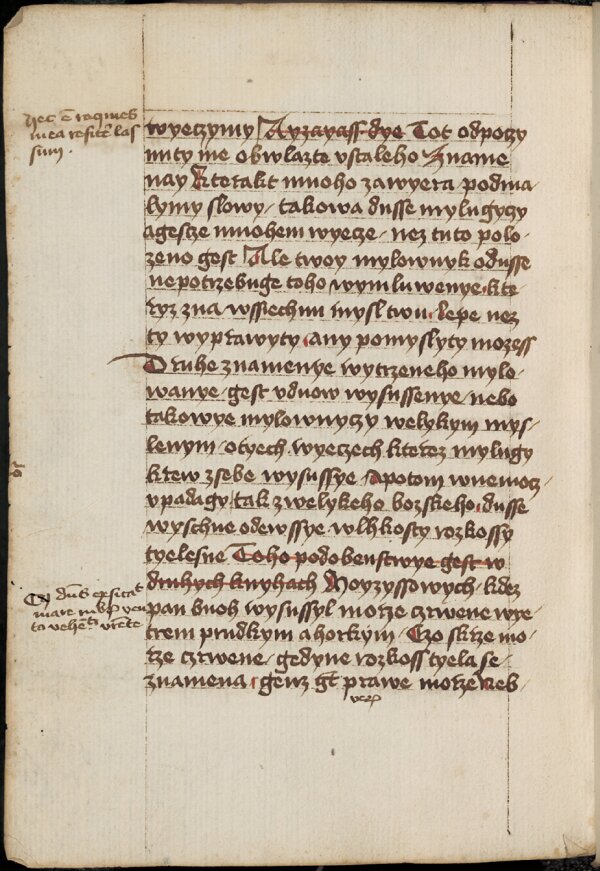 hec e͞ requies
mea reficite͞ las
sum ·
wyeczymy Ayzayass dye Tot odpoczy
nuty me obwlazte vstaleho Zname
nay Kterakt mnoho zawyera podma
lymy slowy / takowa dusse mylugyczy
agescze mnohem wyecze / nez tuto polo /
zeno gest Ale twoy mylownyk odusse
nepotrzebuge toho wymluwenye kte
ryz zna wssiechnu myslt wu lepe nez
ty wyprawyty / any pomyslyty mozess
Druhe znamenye wytrzeneho mylo /
wanye / gest vduow wysussenye / nebo
takowye mylownyczy welykym mys /
lenym / otyech wyeczech kterez mylugy
krew zsebe wysussye / apotom wnemocz /
vpadagy / tak zwelykeho bozskeho dusse
wyschne odewssye wlhkosty rozkossy
tyelesne Toho podobenstwye gest w
druhych knyhach Moyzyssowych / kdez
pan buoh wysussyl morze czrwene wye /
trem prudkym a horkym / Czo skrze mo /
rze czrwene / gedyne rozkoss tyela se /
znamena / genz gt͞ prawe morze neb
mare rub͞ ven
to vehe͞ti vre͞te